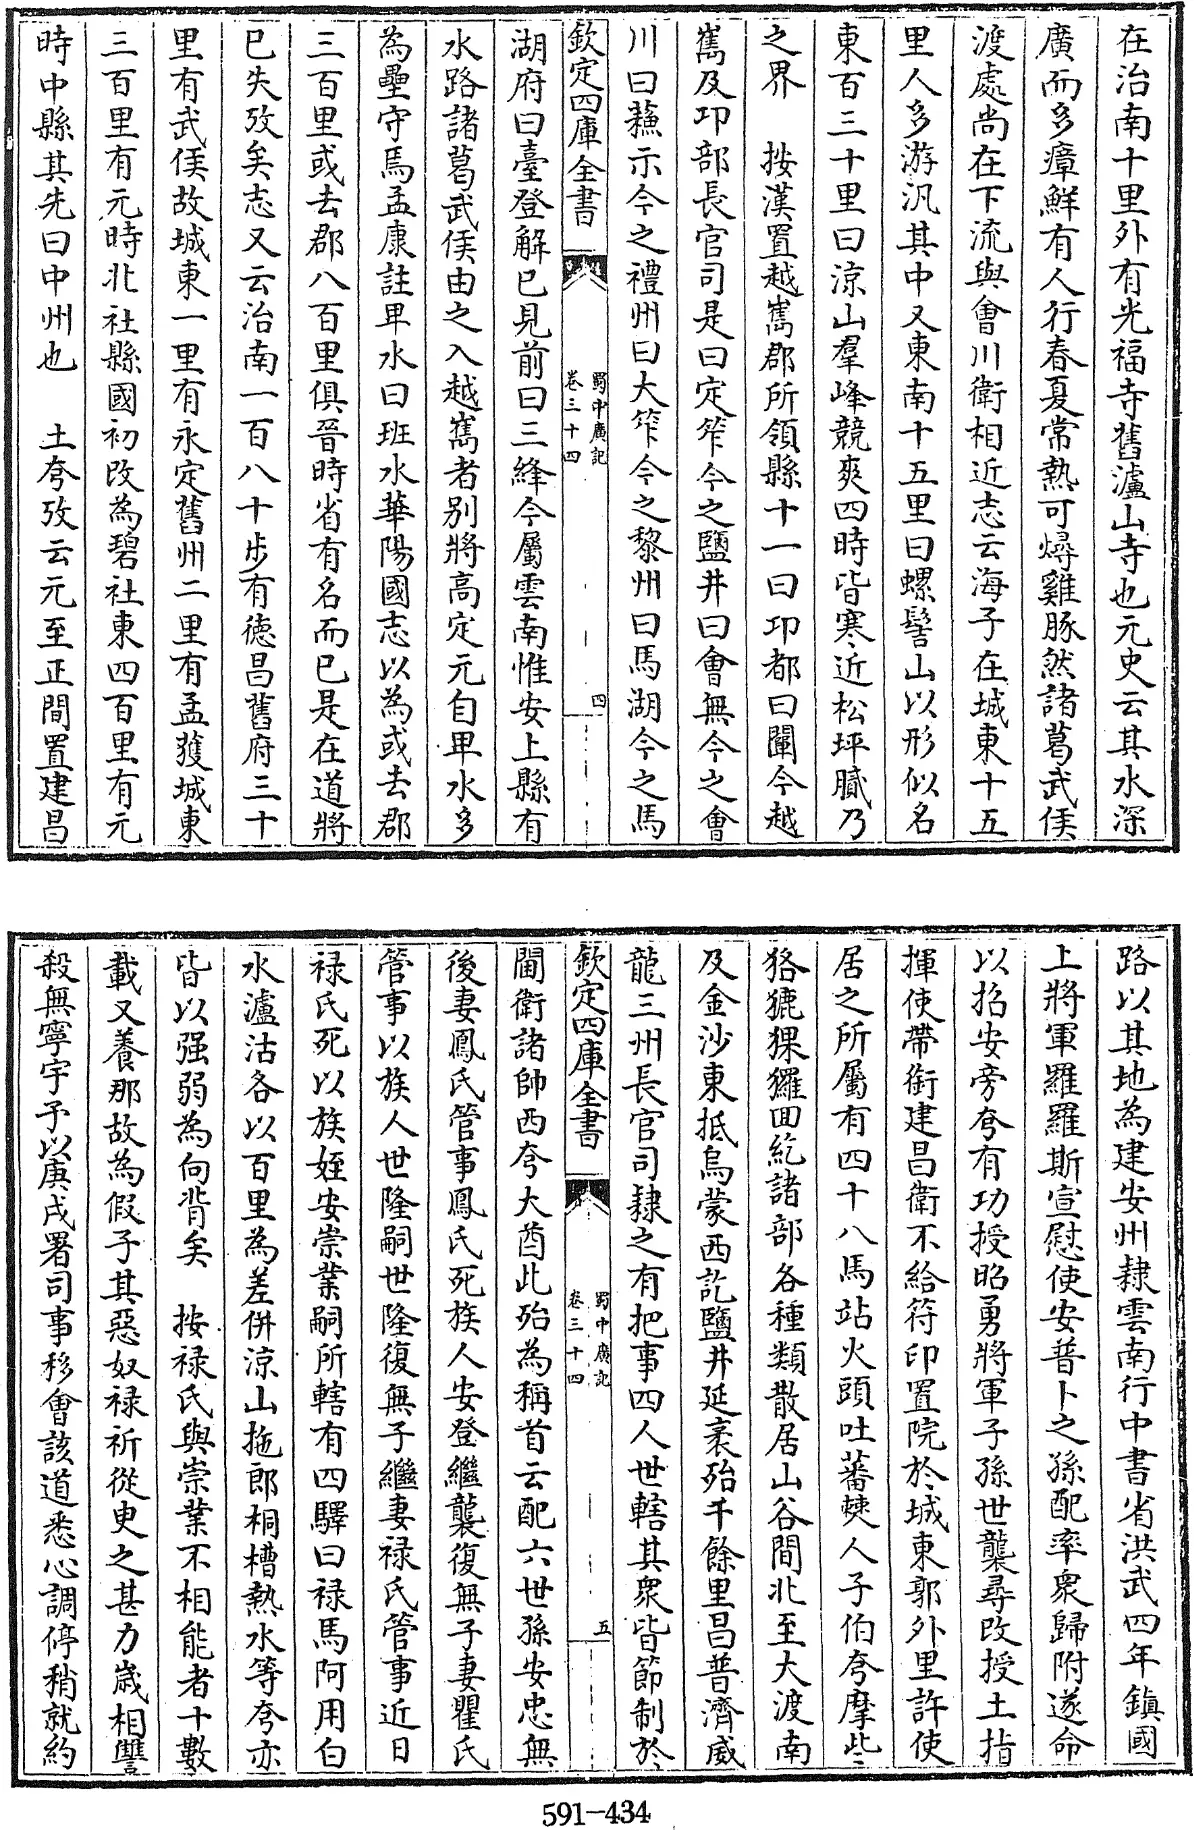 在治南十里外有光福寺舊瀘山寺也元史云其水深
廣而多瘴鮮有人行春夏常熱可燖雞豚然諸葛武侯
渡處尚在下流與會川衛相近志云海子在城東十五
里人多游汎其中又東南十五里曰螺髻山以形似名
東百三十里曰涼山羣峰競爽四時皆寒近松坪膩乃
之界　按漢置越嶲郡所領縣十一曰邛都曰闡今越
嶲及邛部長官司是曰定筰今之鹽井曰會無今之會
川曰蘓示今之禮州曰大筰今之黎州曰馬湖今之馬
欽定四庫全書
蜀中廣記
卷三十四
四
湖府曰臺登解已見前曰三絳今屬雲南惟安上縣有
水路諸葛武侯由之入越嶲者別將高定元自卑水多
為壘守馬孟康註卑水曰班水華陽國志以為或去郡
三百里或去郡八百里俱晉時省有名而已是在道將
已失攷矣志又云治南一百八十步有德昌舊府三十
里有武侯故城東一里有永定舊州二里有孟獲城東
三百里有元時北社縣國初改為碧社東四百里有元
時中縣其先曰中州也　土夸攷云元至正間置建昌
路以其地為建安州隸雲南行中書省洪武四年鎮國
上將軍羅羅斯宣慰使安普卜之孫配率衆歸附遂命
以招安旁夸有功授昭勇將軍子孫世襲尋改授土指
揮使帶銜建昌衛不給符印置院於城東郭外里許使
居之所屬有四十八馬站火頭吐蕃僰人子伯夸摩些
狢㹻猓玀回紇諸部各種類散居山谷間北至大渡南
及金沙東抵烏蒙西訖鹽井延袤殆千餘里昌普濟威
龍三州長官司隸之有把事四人世轄其衆皆節制於
欽定四庫全書
蜀中廣記
卷三十四
五
閫衛諸帥西夸大酋此殆為稱首云配六世孫安忠無
後妻鳳氏管事鳳氏死族人安登繼襲復無子妻瞿氏
管事以族人世隆嗣世隆復無子繼妻禄氏管事近日
禄氏死以族姪安崇業嗣所轄有四驛曰禄馬阿用白
水瀘沽各以百里為差併涼山拖郎桐槽熱水等夸亦
皆以强弱為向背矣　按禄氏與崇業不相能者十數
載又養那故為假子其惡奴禄祈從臾之甚力嵗相讐
殺無寧宇予以庚戌署司事移會該道悉心調停稍就約
591-434